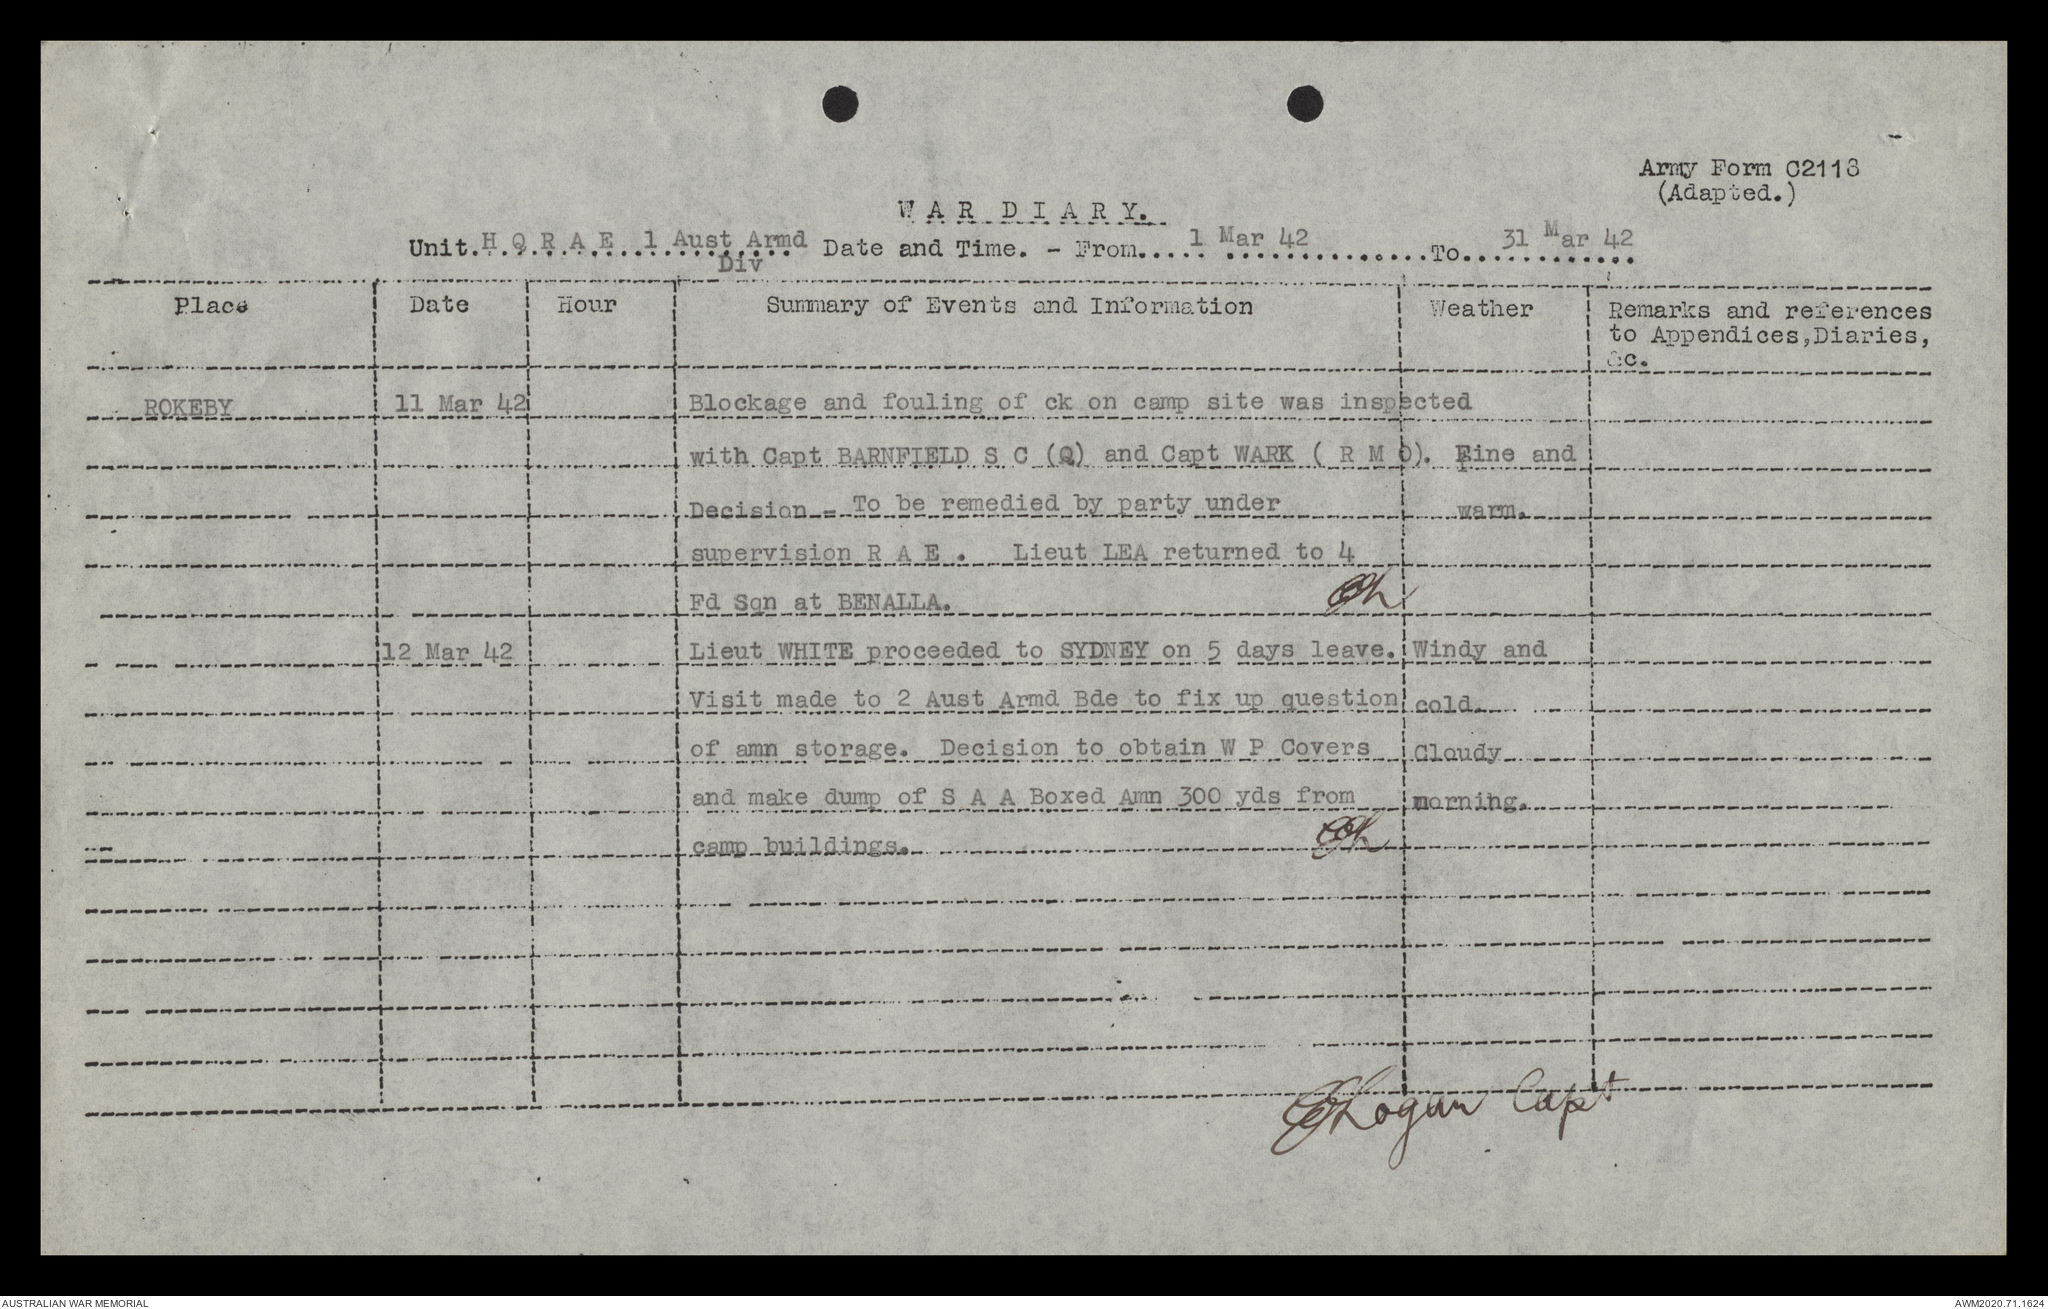 Army Form C2118
(Adapted.)
WAR DIARY.
Unit. H Q R A E 1 Aust Armd Div Date and Time. - From..... 1 Mar 42 ..............To 31 Mar 42
Place Date Hour Summary of Events and Information Weather Remarks and references
to Appendices,Diaries,
&c.
ROKEBY 11 Mar 42 Blockage and fouling of ck on camp site was inspected
with Capt BARNFIELD S C (Q) and Capt WARK ( R M O). Fine and
Decision - To be remedied by party under warm.
supervision R A E . Lieut LEA returned to 4
Fd Sqn at BENALLA.
12 Mar 42 Lieut WHITE proceeded to SYDNEY on 5 days leave. Windy and
Visit made to 2 Aust Armd Bde to fix up question cold.
of amn storage. Decision to obtain W P Covers Cloudy
and make dump of S A A Boxed Amn 300 yds from morning.
camp buildings.
Logan Capt
AUSTRALIAN WAR MEMORIAL AWM2020.71.1624